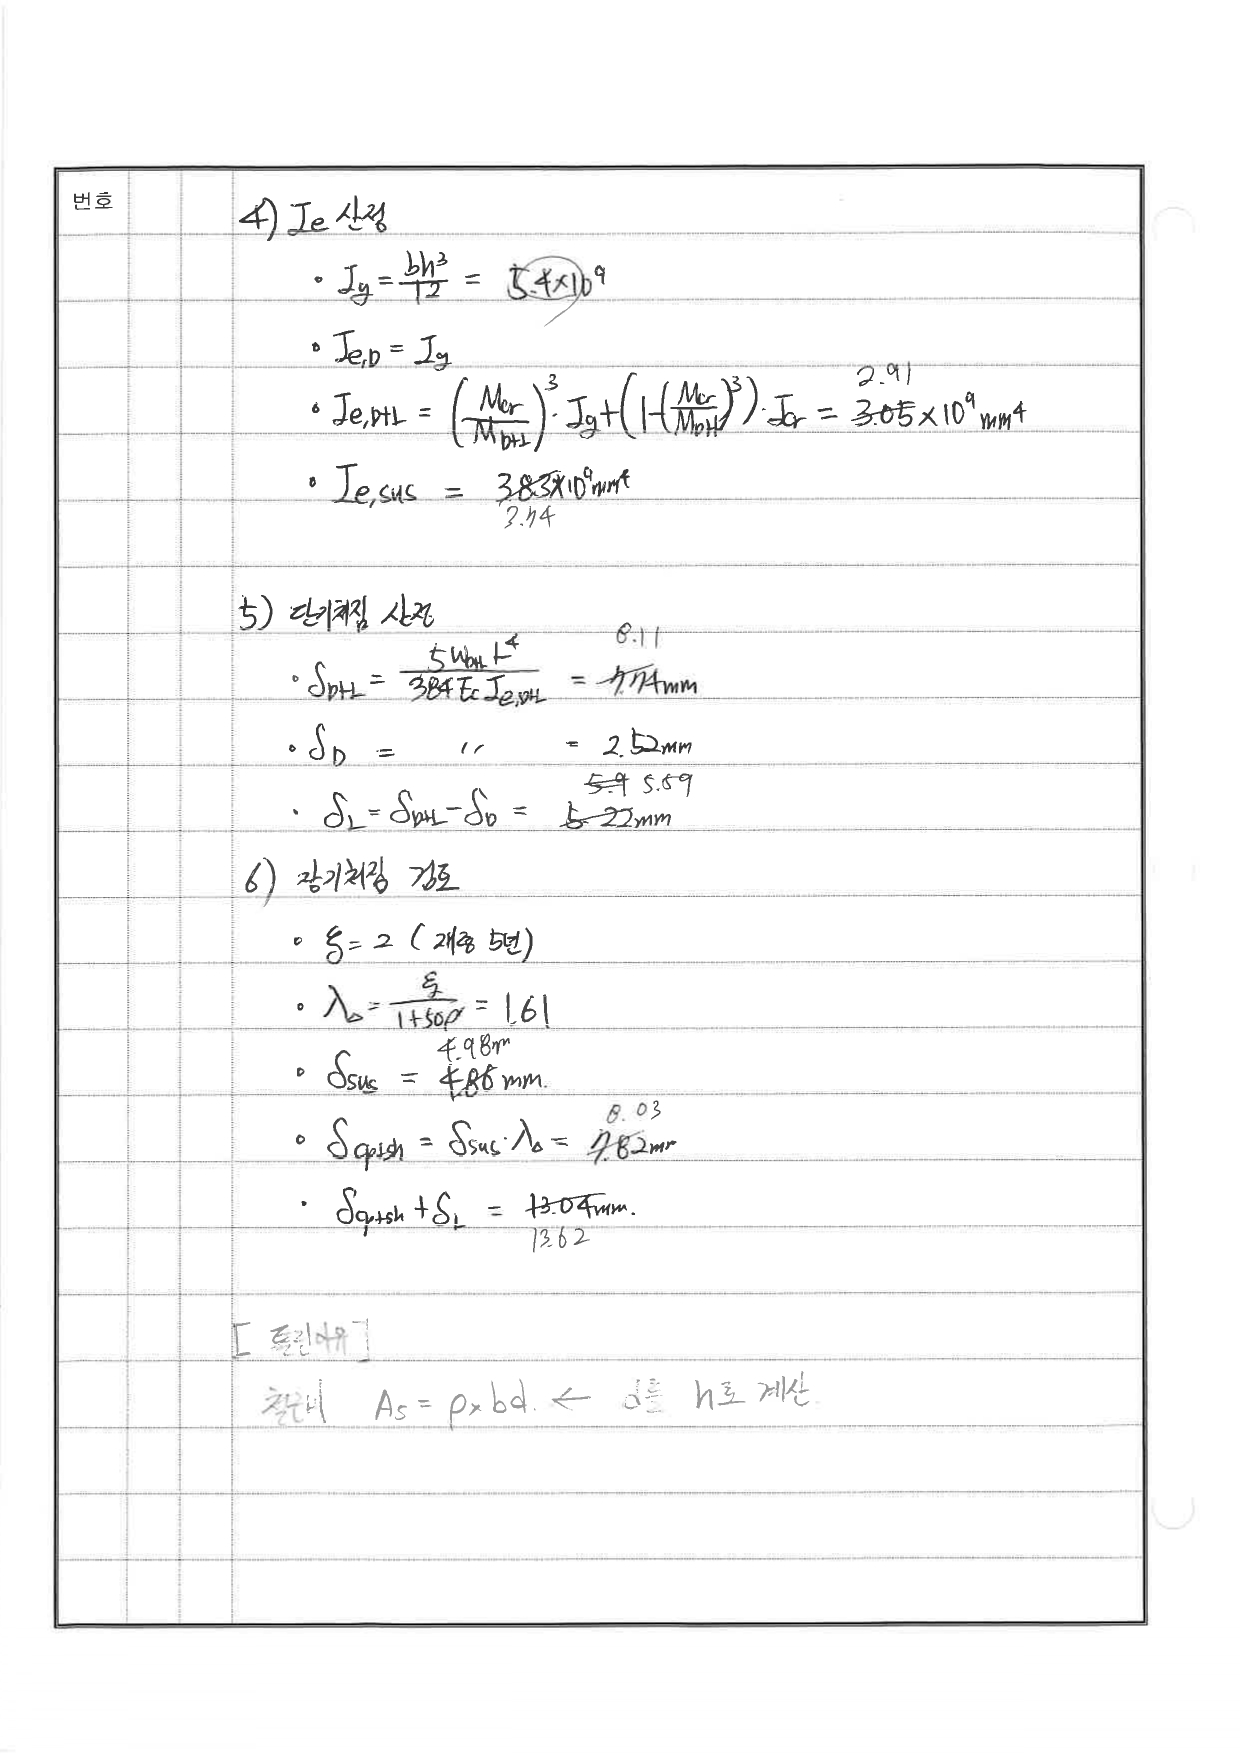 번호
4) Ie 산정
• Ig = bh³/12 = 5.4×10⁹
• Ie,D = Ig
2.91
• Ie,D+L = (Mcr/MD+L)³·Ig+(1-(Mcr/MD+L)³)·Icr = 3.05×10⁹mm⁴
• Ie,sus = 3.83×10⁹mm⁴
3.74
5) 단기처짐 산정
8.11
• δD+L = 5WD+L L⁴/384EcIe,D+L = 7.74mm
• δD = 〃 = 2.52mm
5.9 5.59
• δL = δD+L-δD = 5.22mm
6) 장기처짐 검토
• ξ=2 (재중 5년)
• λΔ = ξ/1+50ρ' = 1.61
4.98m
• δsus = 4.86mm.
8.03
• δcp+sh = δsus·λΔ = 7.82mm
• δcp+sh+δL = 13.04mm.
13.62
[틀린이유]
철근비 As = ρ×bd. ← d를 h로 계산